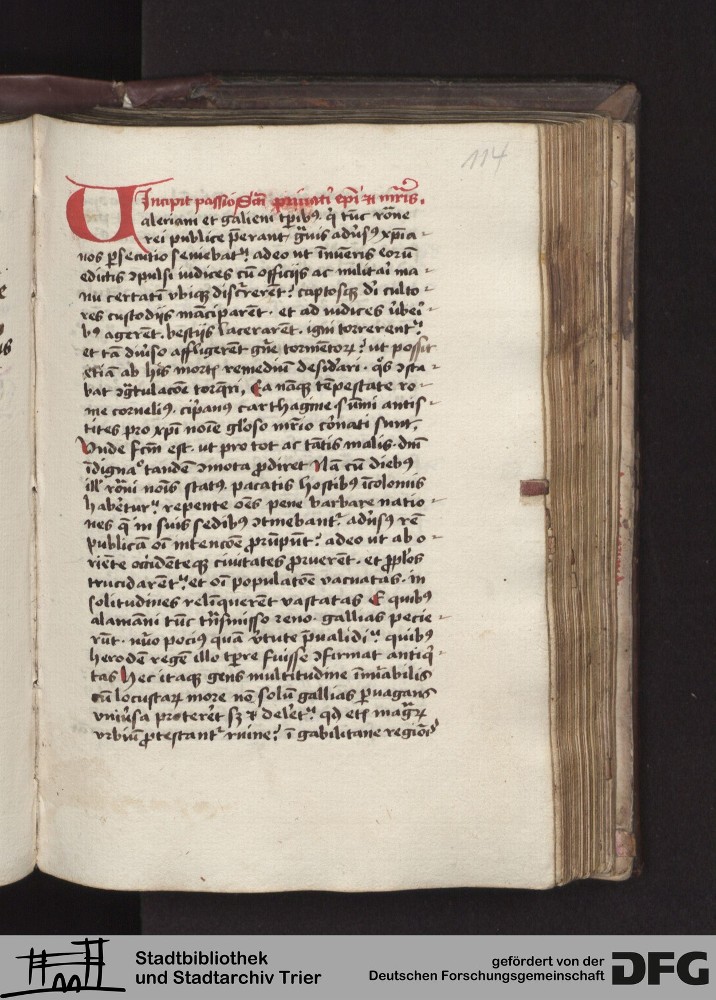 114
Incipit passio Scī priuati epī et mr̄is.
Valeriani et galieni tp̄ibꝰ q̄ tūc rōne
rei publice p̄erant gͣuis adūsꝰ xpīa-
nos ꝑsecutio seuiebat᷑ adeo ut īnuēris eorū
edictis ꝯpulsi iudices cū officijs ac militaī ma-
nu certatī vbiqꝫ discr̄erēt captosqꝫ dī culto-
res custodijs mācipārēt et ad iudices ūbeī-
bꝰ agerēt bestijs lacerarēt igni torrerent᷑
et tā diūso affligerēt gn̄e tormētoꝝ ut possit
etiā ab hijs mortē remediū desidāri qͦs ꝯsta-
bat ꝯgͣtulacōe torq̄ri, Ea nāqꝫ tēpestate ro-
me corneliꝰ cipͥanꝰ carthagine sūmi antis-
tites pro xpī noīe glōso mr̄io cōnati sunt,
Vnde fcm̄ est ut pro tot ac tātis malis dn̄i
īdignaͨo tandē ꝯmota ꝓdiret Nā cū diebꝰ
ill' rōni noīs statꝰ pacatis hostibꝰ īcolomis
habēt᷑ur repente oēs pene barbare natio-
nes q̄ in suis sedibꝰ ꝯtinebant᷑ adūsꝰ rē
publicā oī intencōe ꝓrūpūt᷑ adeo ut ab o-
riēte occidēteqꝫ ciuitates ꝓruerēt et pp̄los
trucidarēt᷑ et oī populatōe vacuatas in
solitudines relīquerēt vastatas E quibꝰ
alamāni tūc tn̄smisso reno gallias pecie-
rūt nūo pociꝰ quā v̄tute p̄ualidi quibꝰ
herodē regē illo tp̄re fuisse ꝯfirmat antiqͥ-
tas Hec itaqꝫ gens multitudine īnūabilis
cū locustaꝝ more nō solū gallias ꝑuagans
vniūsa proterēt sꝫ et delēt᷑ qd̄ etꝫ magͣꝝ
vrbiū ꝓtestant᷑ ruine ī gabilitane regiōīs
Stadtbibliothek
und Stadtarchiv Trier
gefördert von der
Deutschen Forschungsgemeinschaft
DFG